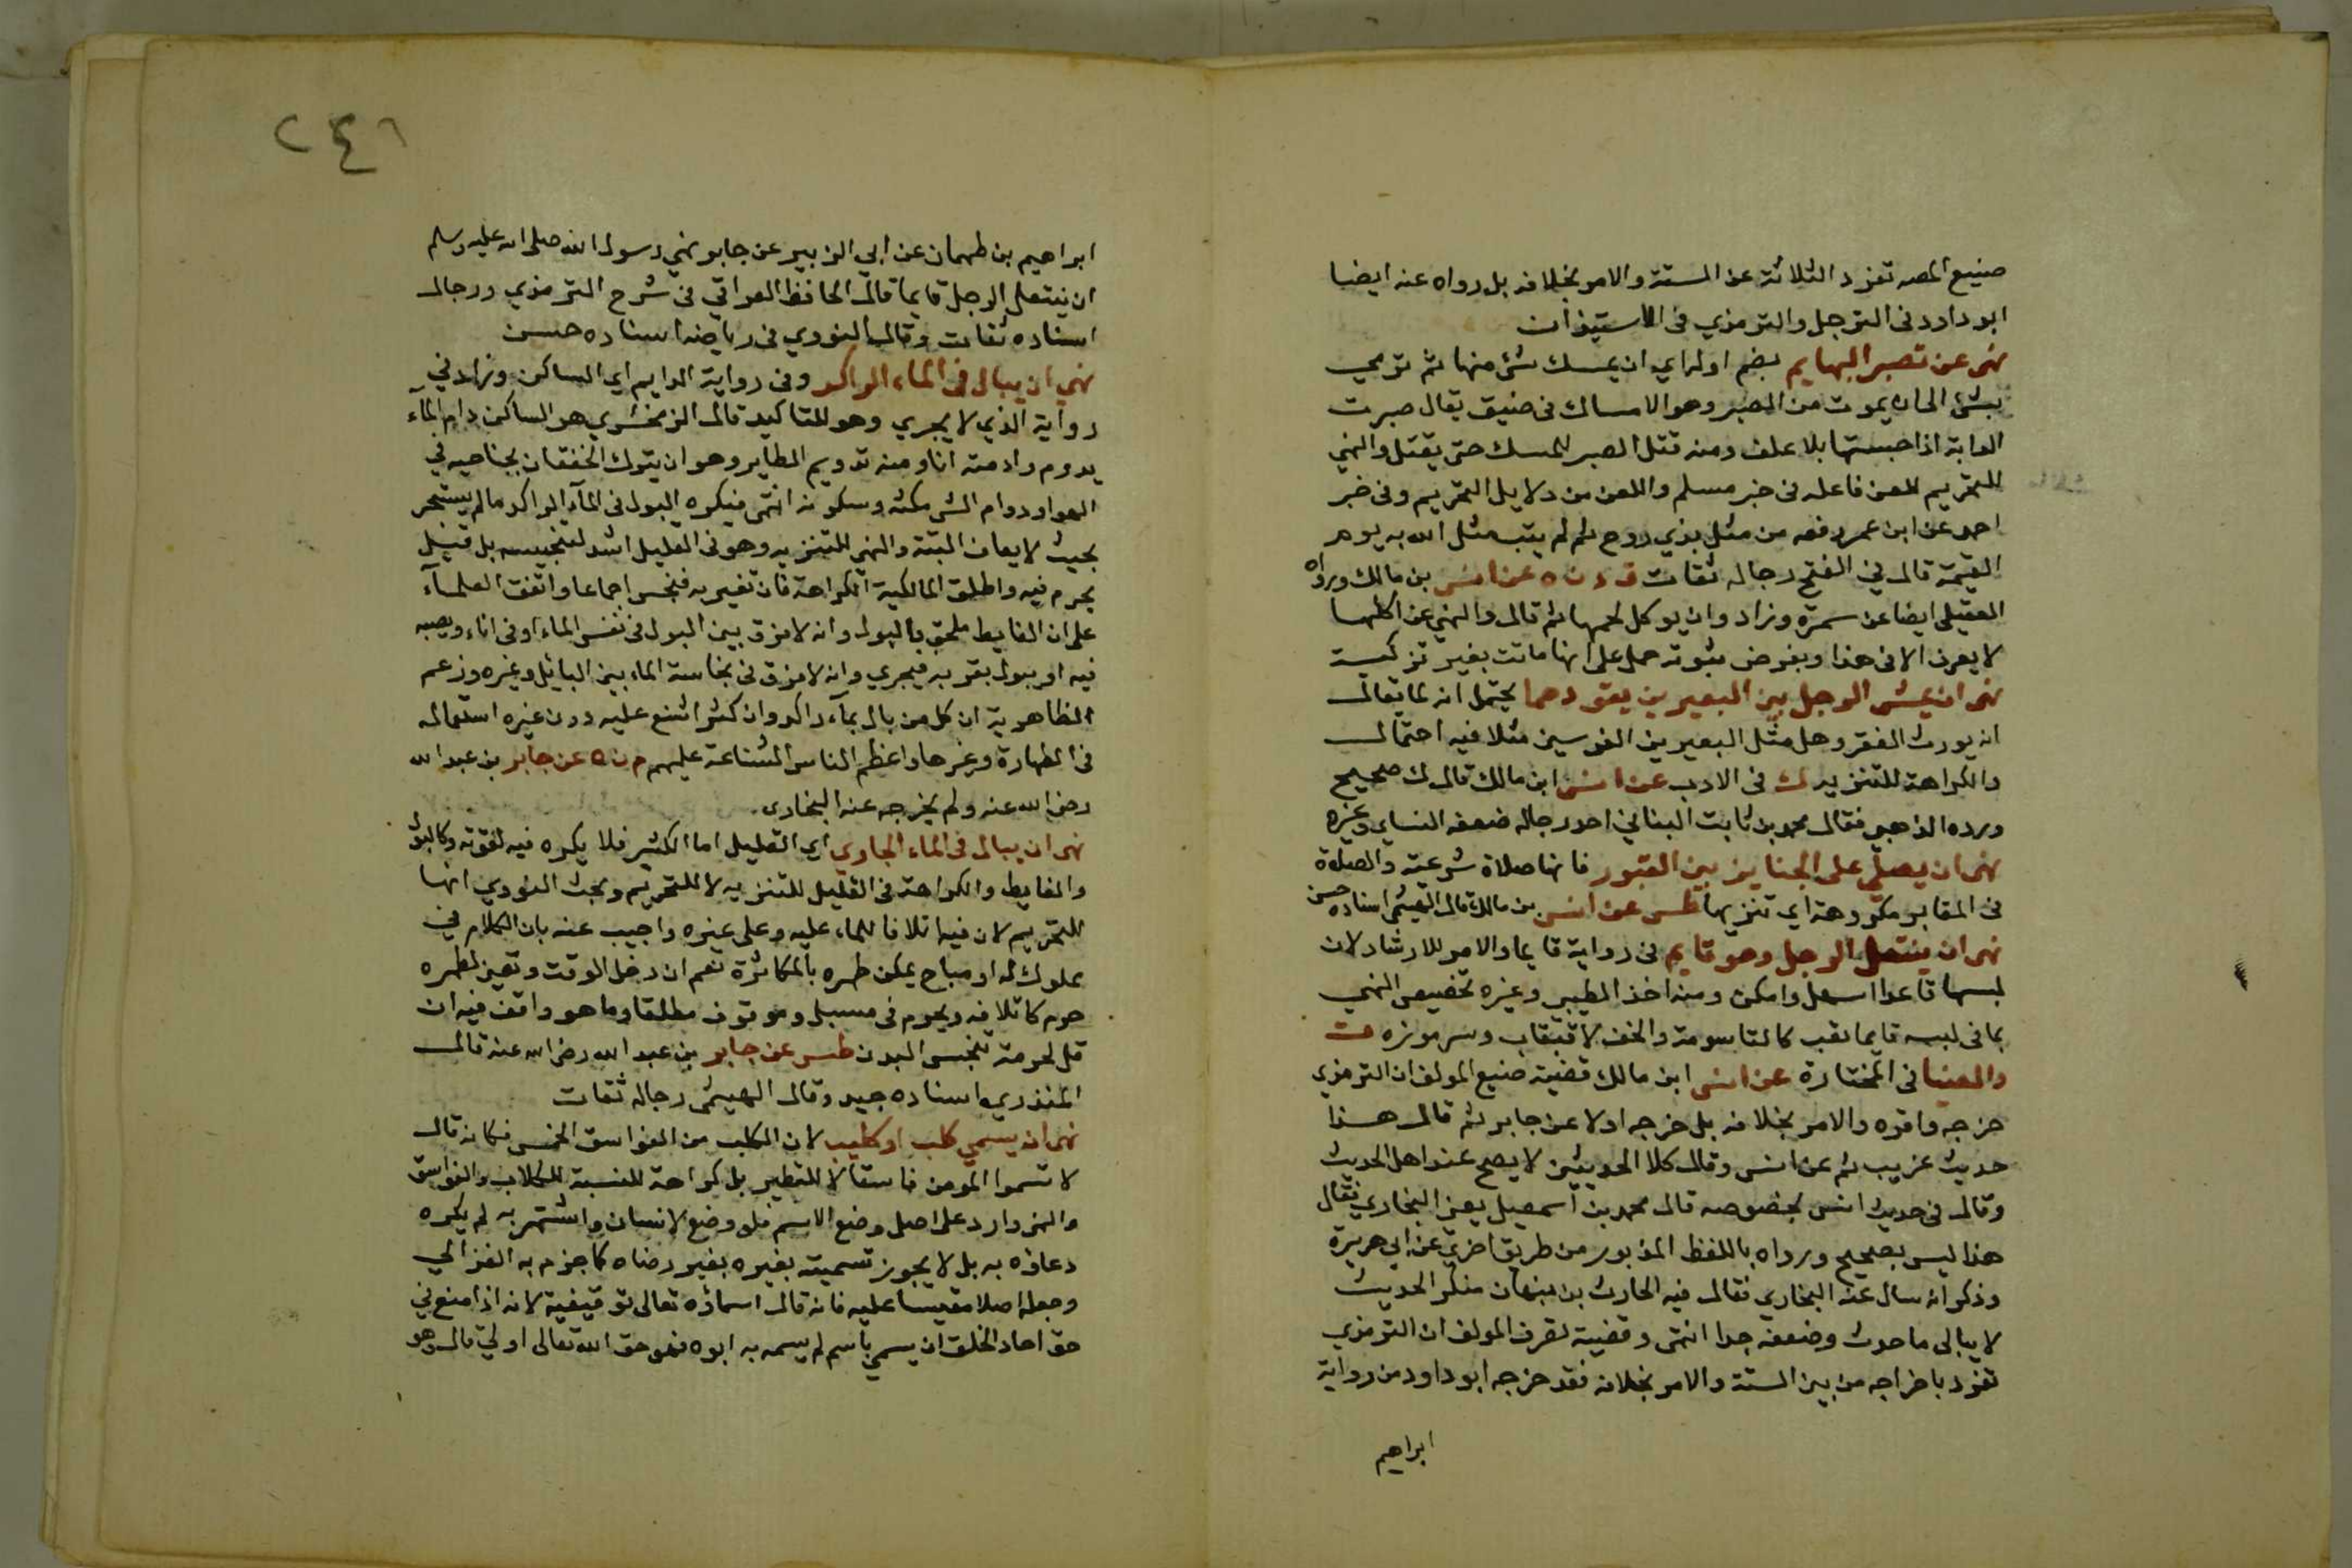 صنيع المصه تفرد الثلاثة عن الستة والامر بخلافه بل رواه عنه ايضا
ابو داود فى الترجل والترمذي فى الاستيذان
نهى عن تصبر البهايم بضم اوله اي ان يمسك شئ منها ثم ترمي
بشئ الى ان يموت من الصبر وهو الامساك فى ضيق يقال صبرت
الدابة اذا حبستها بلا علف ومنه قتل الصبر للمسك حتى يقتل والنهي
للتحريم للعن فاعله فى خبر مسلم واللعن من دلايل التحريم وفى خبر
احمد عن ابن عمر رفعه من مثل بذي روح ثم لم يتب مثل الله به يوم
القيمة قال في الفتح رجاله ثقات ق د ن ه عن انس بن مالك ورواه
العقيلي ايضا عن سمرة وزاد وان يوكل لحمها ثم قال والنهي عن اكلها
لا يعرف الا فى هذا وبفرض ثبوته حمل على انها ماتت بغير تزكية
نهى ان يمشى الرجل بين البعيرين يقودهما يحتمل انه لما يقال
انه يورث الفقر وهل مثل البعيرين الفرسين مثلا فيه احتمال
والكراهة للتنزيه ك فى الادب عن انس ابن مالك قال ك صحيح
ورده الذهبي فقال محمد بن ثابت البناني احد رجاله ضعفه النساي وغيره
نهى ان يصلي على الجنايز بين القبور فانها صلاة شرعية والصلوة
فى المقابر مكروهة اي تنزيها طس عن انس بن مالك قال الهيثمي اسناده حسن
نهى ان ينتعل الرجل وهو قايم فى رواية قايما والامر للارشاد لان
لبسها قاعدا اسهل وامكن ومنه اخذ الطيبي وغيره تخصيص النهي
بما فى لبسه قايما تعب كالتاسومة والخف لا قبقاب وسرموزه ت
والضيا فى المختارة عن انس ابن مالك قضية صنيع المولف ان الترمذي
خرجه واقره والامر بخلافه بل خرجه اولا عن جابر ثم قال هذا
حديث غريب ثم عن انس وقال كلا الحديثين لا يصح عند اهل الحديث
وقال فى حديث انس بخصوصه قال محمد بن اسمعيل يعني البخاري فقال
هذا ليس بصحيح ورواه باللفظ المزبور من طريق اخري عن ابي هريرة
وذكر انه سال عنه البخاري فقال فيه الحارث بن نبهان منكر الحديث
لا يبالى ما حدث وضعفه جدا انتهى وقضية تصرف المولف ان الترمذي
تفرد باخراجه من بين الستة والامر بخلافه فقد خرجه ابو داود من رواية
ابراهيم
٢٤٦
ابراهيم بن طهمان عن ابي الزبير عن جابر نهي رسول الله صلى الله عليه وسلم
ان ينتعل الرجل قايما قال الحافظ العراقي فى شرح الترمذي ورجال
اسناده ثقات وقال النووي فى رياضه اسناده حسن
نهي ان يبال فى الماء الراكد وفى رواية الدايم اي الساكن وزاد في
رواية الذي لا يجري وهو للتاكيد قال الزمخشري هو الساكن دام المآء
يدوم وادمته انا ومنه تدويم الطاير وهو ان يترك الخفقان بجناحيه في
الهوا ودوام الشي مكثه وسكونه انتهى فيكره البول فى المآء الراكد ما لم يستبحر
بحيث لا يعاف البتة والنهي للتنزيه وهو فى القليل اشد لتنجيسه بل قيل
يحرم فيه واطلق المالكية الكراهة فان تغير به فنجس اجماعا واتفق العلمآء
على ان الغايط ملحق بالبول وانه لا فرق بين البول فى نفس الماء او فى اناء ويصبه
فيه او يبول بقربه فيجري وانه لا فرق فى نجاسة الماء بين البائل وغيره وزعم
الظاهرية ان كل من بال بمآء راكد وان كثر امتنع عليه دون غيره استعماله
فى الطهارة وغيرها واعظم الناس الشناعة عليهم م ن ه عن جابر بن عبد الله
رضى الله عنه ولم يخرجه عنه البخارى.
نهى ان يبال فى الماء الجاري اي القليل اما الكثير فلا يكره فيه لقوته وكالبول
والغايط والكراهة فى القليل للتنزيه لا للتحريم وبحث النووي انها
للتحريم لان فيه اتلافا للماء عليه وعلى غيره واجيب عنه بان الكلام في
مملوك له او مباح يمكن طهره بالمكاثرة نعم ان دخل الوقت وتعين لطهره
حرم كاتلافه ويحرم فى مسبل وموقوف مطلقا وما هو واقف فيه ان
قل لحرمة تنجس البدن طس عن جابر بن عبد الله رضى الله عنه قال
المنذري اسناده جيد وقال الهيثمى رجاله ثقات
نهى ان يسمي كلب او كليب لان الكلب من الفواسق الخمس فكانه قال
لا تسموا المومن فاسقا لا للتطير بل كراهة للنسبة للكلاب والفواسق
والنهى وارد على اصل وضع الاسم فلو وضع لانسان واشتهر به لم يكره
دعاؤه به بل لا يجوز تسميته بغيره بغير رضاه كما جزم به الغزالي
وجعله اصلا مقيسا عليه فانه قال اسماؤه تعالى توقيفية لانه اذا منع في
حق احاد الخلق ان يسمي باسم لم يسمه به ابوه ففى حق الله تعالى اولي قال وهو